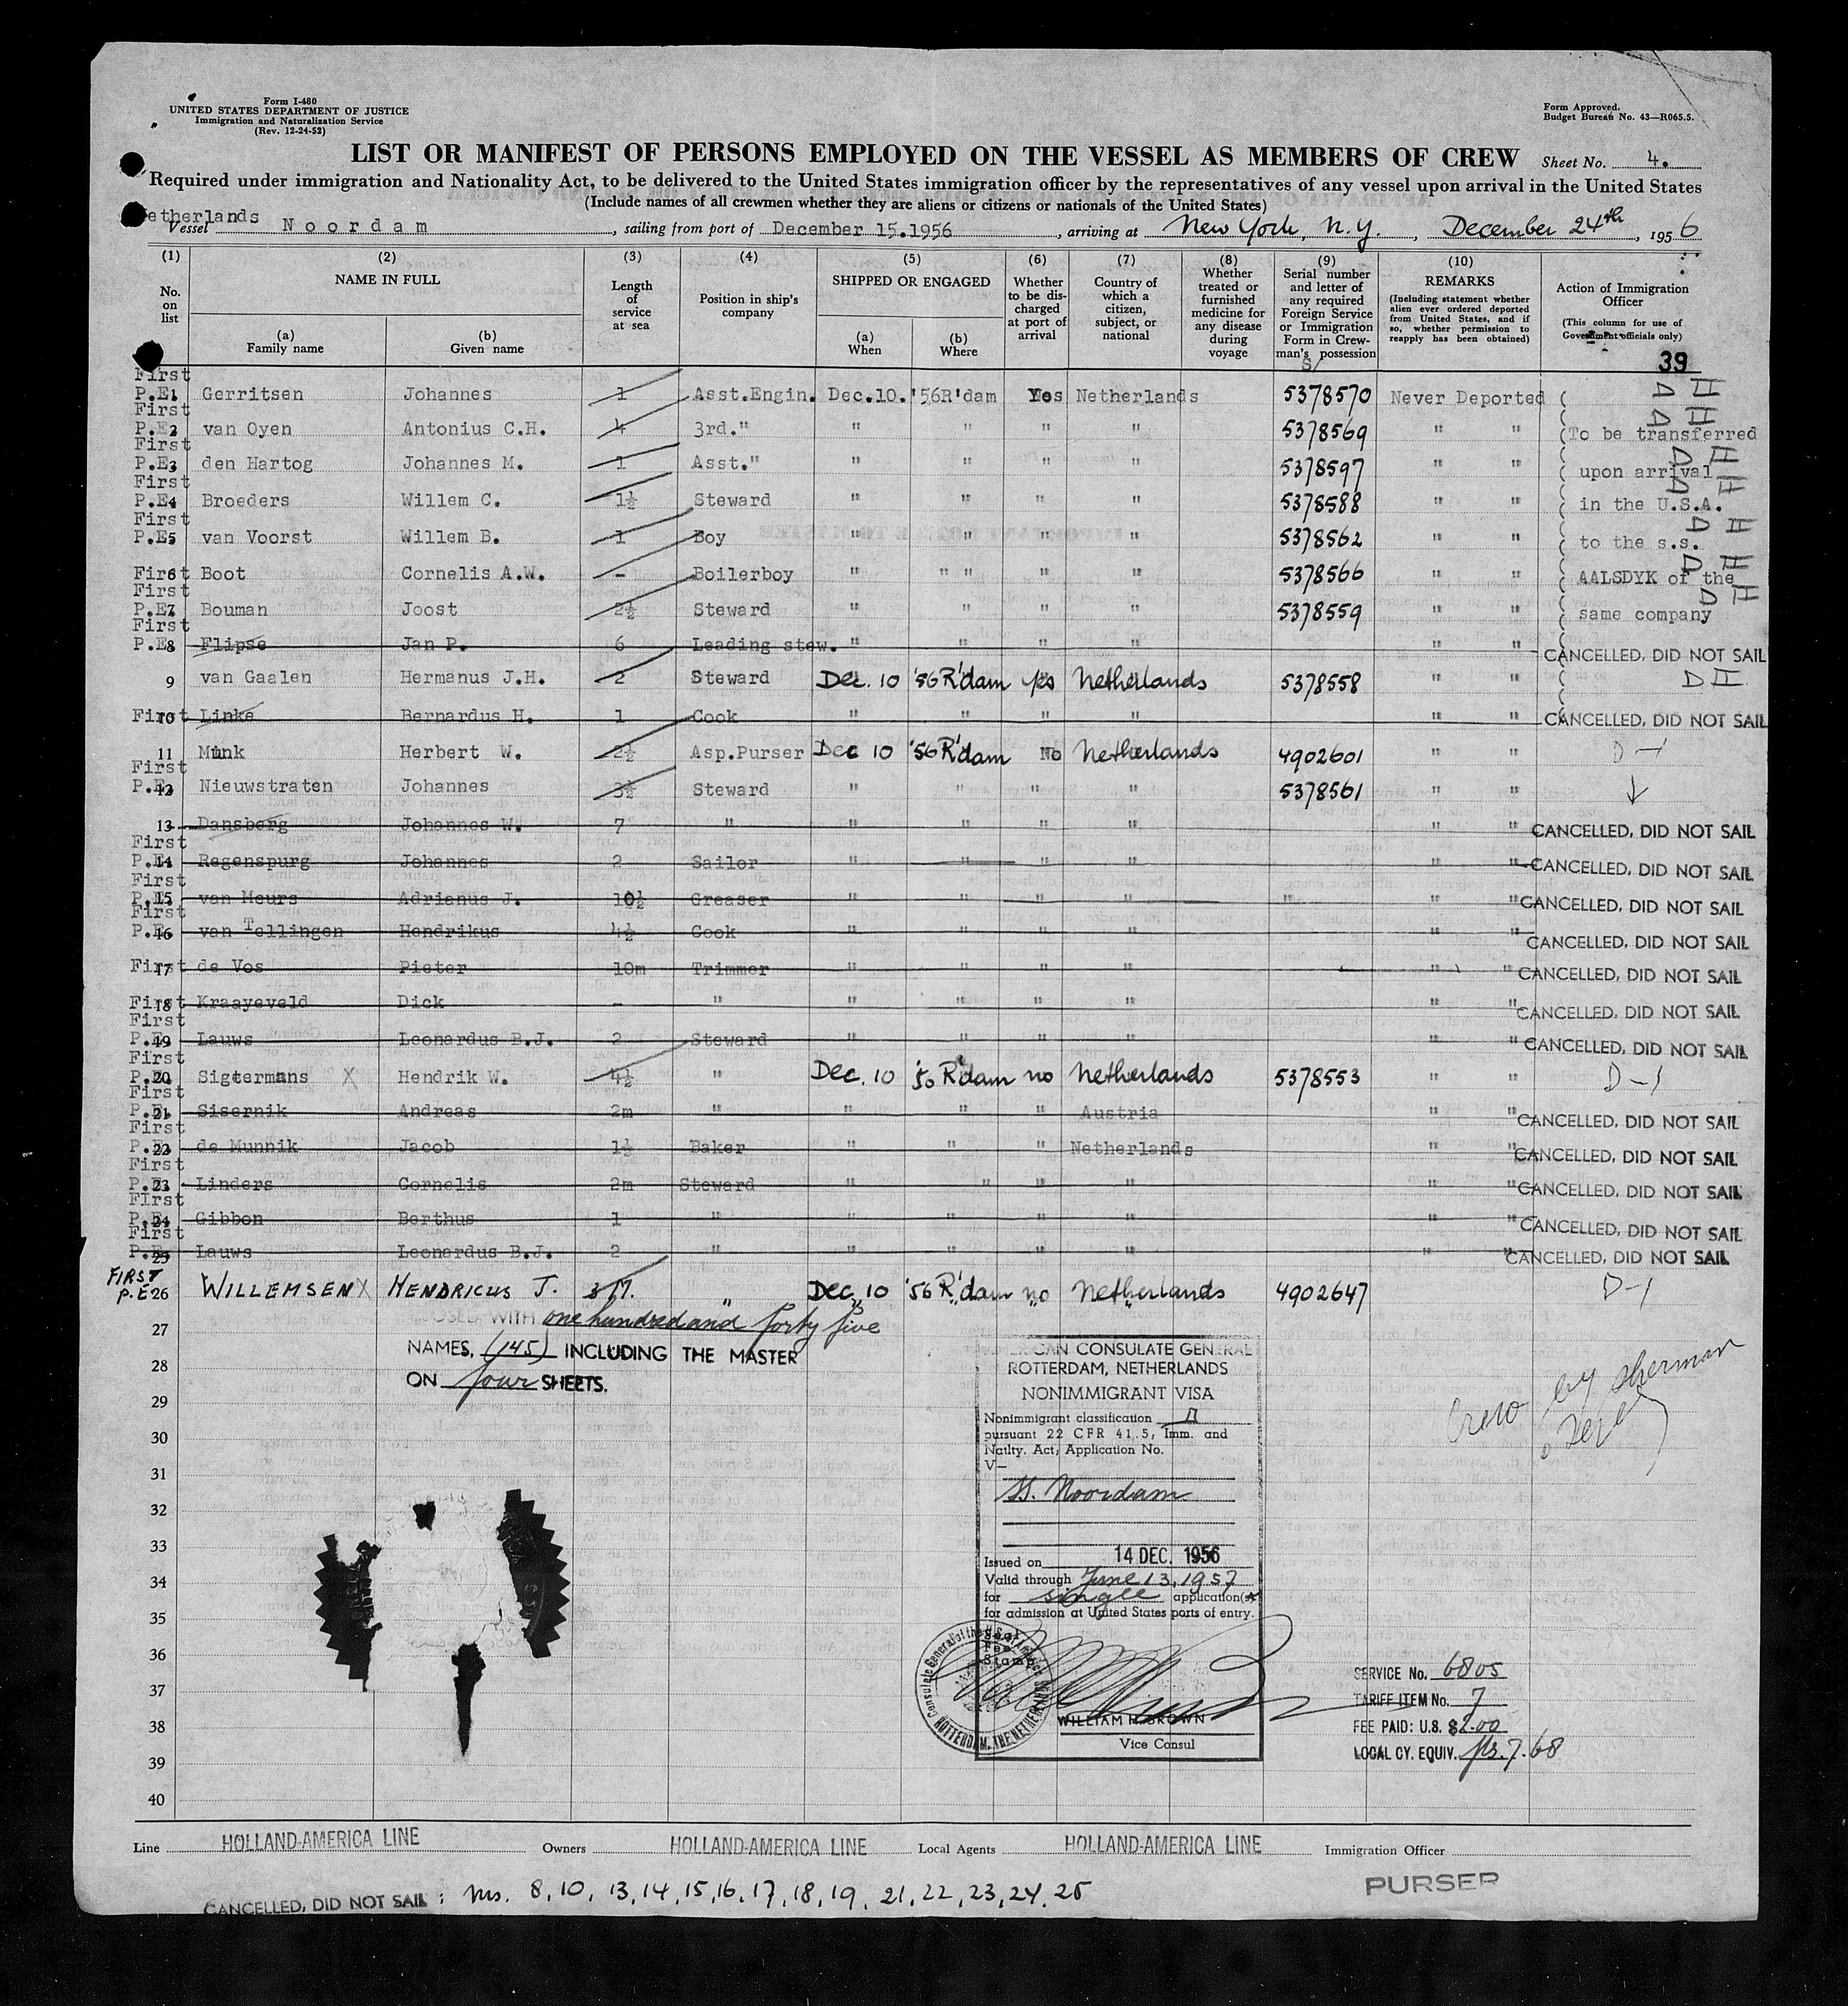 Form I-480
UNITED STATES DEPARTMENT OF JUSTICE
Immigration and Naturalization Service
(Rev. 12-24-52)
Form Approved.
Budget Bureau No. 43—R065.5.
LIST OR MANIFEST OF PERSONS EMPLOYED ON THE VESSEL AS MEMBERS OF CREW Sheet No. 4.
Required under immigration and Nationality Act, to be delivered to the United States immigration officer by the representatives of any vessel upon arrival in the United States
(Include names of all crewmen whether they are aliens or citizens or nationals of the United States)
etherlands
Vessel Noordam, sailing from port of December 15.1956, arriving at New York, N.Y., December 24th, 1956
(1) No. on list
(2) NAME IN FULL
(a) Family name
(b) Given name
(3) Length of service at sea
(4) Position in ship's company
(5) SHIPPED OR ENGAGED
(a) When
(b) Where
(6) Whether to be discharged at port of arrival
(7) Country of which a citizen, subject, or national
(8) Whether treated or furnished medicine for any disease during voyage
(9) Serial number and letter of any required Foreign Service or Immigration Form in Crewman's possession
(10) REMARKS
(Including statement whether alien ever ordered deported from United States, and if so, whether permission to reapply has been obtained)
Action of Immigration Officer
(This column for use of Government officials only)
39
First P.E. 1 Gerritsen Johannes 1 Asst.Engin. Dec.10.'56 R'dam Yes Netherlands 5378570 Never Deported D II
First P.E. 2 van Oyen Antonius C.H. 4 3rd." " " " " 5378569 " " To be transferred D II
First P.E. 3 den Hartog Johannes M. 1 Asst." " " " " 5378597 " " upon arrival D II
First P.E. 4 Broeders Willem C. 1½ Steward " " " " 5378588 " " in the U.S.A. D II
First P.E. 5 van Voorst Willem B. 1 Boy " " " " 5378562 " " to the s.s. D II
First 6 Boot Cornelis A.W. - Boilerboy " " " " " 5378566 " " AALSDYK of the D II
First P.E. 7 Bouman Joost 2½ Steward " " " " 5378559 " " same company D II
First P.E. 8 Flipse Jan P. 6 Leading stew. " " " " " " CANCELLED, DID NOT SAIL
9 van Gaalen Hermanus J.H. 2 Steward Dec. 10 '56 R'dam yes Netherlands 5378558 " " D II
First 10 Linke Bernardus H. 1 Cook " " " " " " CANCELLED, DID NOT SAIL
11 Munk Herbert W. 2½ Asp.Purser Dec 10 '56 R'dam No Netherlands 4902601 " " D-1
First P.E. 12 Nieuwstraten Johannes 3½ Steward " " " " 5378561 " " ↓
13 Dansberg Johannes W. 7 " " " " " " " CANCELLED, DID NOT SAIL
First P.E. 14 Regenspurg Johannes 2 Sailor " " " " " " CANCELLED, DID NOT SAIL
First P.E. 15 van Meurs Adrianus J. 10½ Greaser " " " " " " " CANCELLED, DID NOT SAIL
First P.E. 16 van Tellingen Hendrikus 4½ Cook " " " " " " CANCELLED, DID NOT SAIL
First 17 de Vos Pieter 10m Trimmer " " " " " " CANCELLED, DID NOT SAIL
First 18 Kraayeveld Dick - " " " " " " " CANCELLED, DID NOT SAIL
First P.E. 19 Lauws Leonardus B.J. 2 Steward " " " " " " CANCELLED, DID NOT SAIL
First P.E. 20 Sigtermans X Hendrik W. 4½ " Dec. 10 '56 R'dam no Netherlands 5378553 " " D-1
First P.E. 21 Sisernik Andreas 2m " " " " Austria " " CANCELLED, DID NOT SAIL
First P.E. 22 de Munnik Jacob 1½ Baker " " " Netherlands " " CANCELLED, DID NOT SAIL
First P.E. 23 Linders Cornelis 2m Steward " " " " " " CANCELLED, DID NOT SAIL
FIrst P.E. 24 Gibbon Berthus 1 " " " " " " " CANCELLED, DID NOT SAIL
First P.E. 25 Lauws Leonardus B.J. 2 " " " " " " " CANCELLED, DID NOT SAIL
FIRST P.E 26 WILLEMSEN X HENDRICUS J. 3 M. " Dec. 10 '56 R'dam no Netherlands 4902647 D-1
27
28
29
30
31
32
33
34
35
36
37
38
39
40
WITH one hundred and forty five
NAMES, (145) INCLUDING THE MASTER
ON four SHEETS.
CAN CONSULATE GENERAL
ROTTERDAM, NETHERLANDS
NONIMMIGRANT VISA
Nonimmigrant classification D
pursuant 22 CFR 41.5, Imm. and
Natlty. Act, Application No.
V—
SS. Noordam
Issued on 14 DEC. 1956
Valid through June 13, 1957
for single application(s)
for admission at United States ports of entry.
Seal
Fee
Stamp
WILLIAM H. BROWN
Vice Consul
Crew by Sherman
SERVICE No. 6805
TARIFF ITEM No. 7
FEE PAID: U.S. $2.00
LOCAL CY. EQUIV. fls. 7.68
Line HOLLAND-AMERICA LINE Owners HOLLAND-AMERICA LINE Local Agents HOLLAND-AMERICA LINE Immigration Officer
PURSER
CANCELLED, DID NOT SAIL : nrs. 8, 10, 13, 14, 15, 16, 17, 18, 19, 21, 22, 23, 24, 25